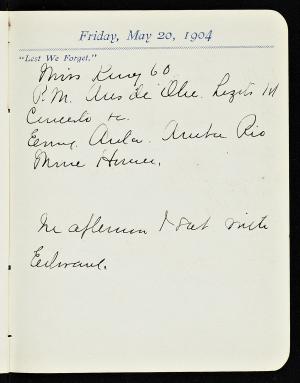 Friday, May 20, 1904
"Lest We Forget."
Miss King 60
P.M. Aus der Ohe. Liszts 1st
Concerto
Eemy. Anita Rio
Mme Homer.
In afternoon I sat with
Edward.